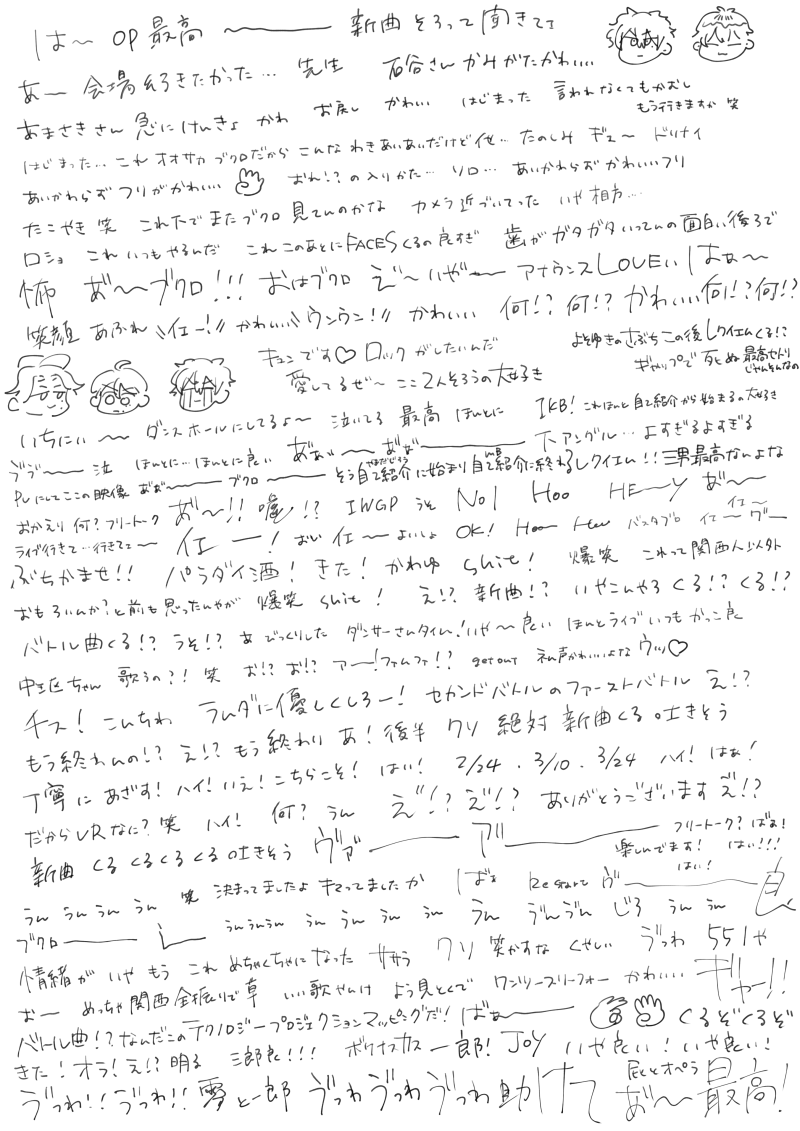 は〜 OP最高 ――― 新曲 そろって聞きてェ
あ〜 会場行きたかった… 先生 石谷さん かみがたかわいい…
あまさきさん 急にけんきょ かわ お戻し かわいい はじまった 言われなくてもかまし
もう行きますか 笑
はじまった… これ オオサカ ブクロだから こんな わきあいあいだけど 他… たのしみ ギェ〜 ドリナイ
あいかわらず フリがかわいい おれ!?の入りかた… ソロ… あいかわらずかわいいフリ
たこやき 笑 これ下でまたブクロ見てんのかな カメラ近づいてった いや相方…
ロショ これ いつもやるんだ これ このあとにFACESくるの良すぎ 歯がガタガタいってんの面白い後ろで
怖 あ゛〜ブクロ!!! おはブクロ え゛〜いや゛ー アナウンスLOVEい はぁ〜
笑顔 あふれ イェー!! かわいい ウンウン!! かわいい 何!? 何!? かわいい何!?何!?
キュンです♡ ロックがしたいんだ
よそゆきのさぶちこの後レクイエムくる!?
ギャップで死ぬ 最高
愛してるぜ〜 ここ2人そろうの大好き
いちにぃ〜 ダンスホールにしてるよ〜 泣いてる 最高 ほんとに IKB! これほんと自己紹介から始まるの大好き
う゛う゛〜 泣 ほんとに…ほんとに良い あ゛ぁ〜 あ゛ぁ゛―― 下アングル… よすぎるよすぎる
PVにしてここの映像 あ゛ぁ゛―― ブクロ―― そう自己紹介に始まり自己紹介に終わるレクイエム!! 三男最高だよな
おかえり 何? フリートーク あ゛〜!! 嘘!? IWGP うそ No1 Hoo HE―Y あ゛〜
ライブ行きて…行きてェ〜 イェー! おい イェー よいしょ OK! Hoo Hoo バスタブロ イェ〜 イェ〜 ヴー
ぶちかませ!! パラダイ酒! きた! かわゆ shit! 爆笑 これって関西人以外
おもろいんか?と前も思ったんやが 爆笑 shit! え!? 新曲!? いやこんやろ くる!? くる!?
バトル曲くる!? うそ!? あ びっくりした ダンサーさんタイム! いや〜良い ほんとライブいつもかっこ良
中王区ちゃん 歌うの?! 笑 お!? お!? アー! ファムファ!? get out ネムちゃんかわいいよな ウッ♡
チス! こんちわ ラムダに優しくしろー! セカンドバトルのファーストバトル え!?
もう終わんの!? え!? もう終わり あ! 後半 クソ 絶対 新曲くる 吐きそう
丁寧に あざす! ハイ! いえ! こちらこそ! はい! 2/24 . 3/10 . 3/24 ハイ! はぁ!
だからVRなに? 笑 ハイ! 何? うん え゛!? え゛!? ありがとうございます え゛!?
新曲 くるくるくるくる 吐きそう ヴァ゛――― ア゛――― フリートーク? ばぁ!
楽しんでます! はい!!!
はい!
うん うん うん うん 笑 決まってましたよ キマってましたか ばぁ Restart ヴ――― 良
ブクロ――― し― うんうんうん うん うん うん うん うん うんうん じろ うん うん
情緒が いや もう これ めちゃくちゃになった ササラ クソ 笑かすな くやしい う゛っわ 551や
お〜 めっちゃ関西全振りで草 いい歌やんけ よう見とくで ワンツースリーフォー かわいい ギャー!!
バトル曲!? なんだこのテクノロジープロジェクションマッピングだ! ばぁ――― くるぞくるぞ
きた! オラ! え!? 明る 三郎良!!! ボケナスカス 一郎! JOY いや良い! いや良い!
う゛っわ!! う゛っわ!! 零と一郎 う゛っわ う゛っわ う゛っわ 助けて 乱とオペラ 良!
あ゛〜最高!